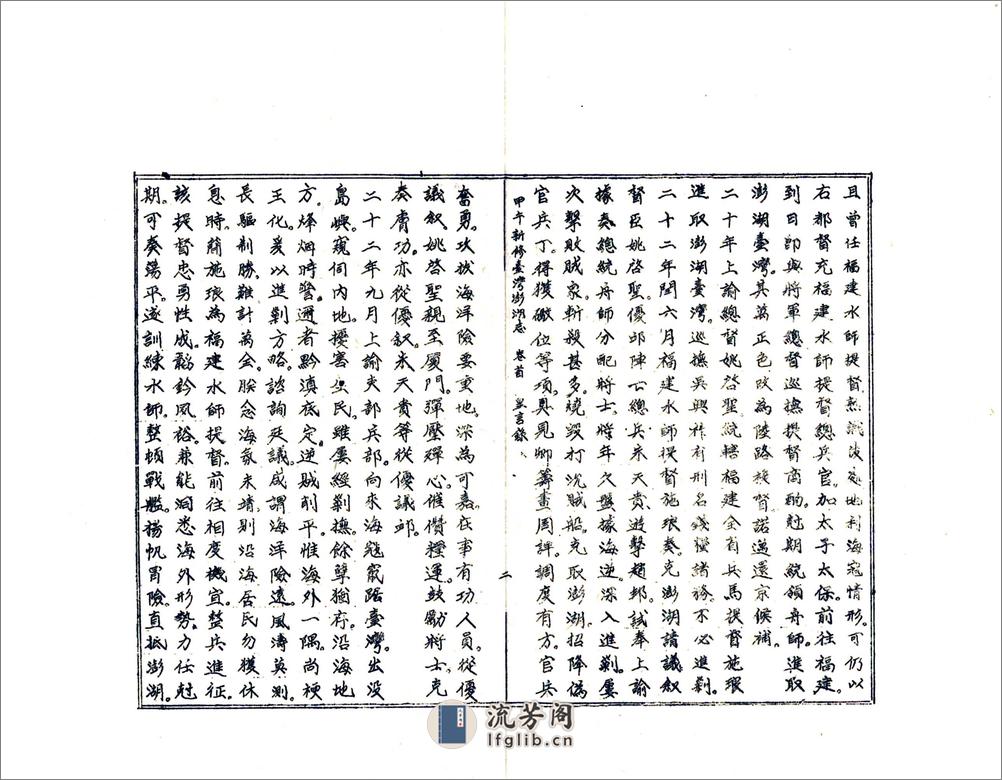 且曾任福建水師提督熟識彼處地利海寇情形。可仍以
右都督充福建水師提督總兵官。加太子太保。前往福建。
到日即與將軍總督巡撫提督商酌。尅期統領舟師。進取
澎湖臺灣。其萬正色改為陸路提督。諾邁還京候補。
二十年上諭總督姚啓聖統轄福建全省兵馬提督施琅
進取澎湖臺灣。巡撫吳興祚有刑名錢糧諸務。不必進剿。
二十二年閏六月福建水師提督施琅奏。克澎湖請議敘
督臣姚啓聖。優卹陣亡總兵朱天貴。遊擊趙邦試奉上諭
據奏總統舟師分配將士。將年久盤據海逆。深入進剿。屢
次擊敗賊衆。斬殺甚多。燒毀打沈賊船。克取澎湖。招降偽
官兵丁。得獲礮位等項。具見師籌畫周詳。調度有方。官兵
甲午新修臺灣澎湖志 卷首 皇言錄
二
奮勇。攻拔海洋險要重地。深為可嘉。在事有功人員。從優
議敘。姚啓聖親至厦門。彈壓殫心。催儹糧運。鼓勵將士。克
奏膚功。亦從優敘。朱天貴等從優議卹。
二十二年九月上諭吏部兵部。向來海寇竄踞臺灣。出沒
島嶼。窺伺內地。擾害生民。雖屢經剿撫。餘孽猶存。沿海地
方。烽烟時警。邇者黔滇底定。逆賊削平。惟海外一隅。尚梗
王化。爰以進剿方略。諮詢廷議。咸謂海洋險遠。風濤莫測。
長驅制勝。難計萬全。朕念海氛未靖。則沿海居民勿獲休
息。時簡施琅為福建水師提督。前往相度機宜。整兵進征。
該提督忠勇性成。韜鈐風裕。兼能洞悉海外形勢。力任尅
期。可奏蕩平。遂訓練水師。整頓戰艦。揚帆冒險。直抵澎湖。
流芳阁
lfglib.cn